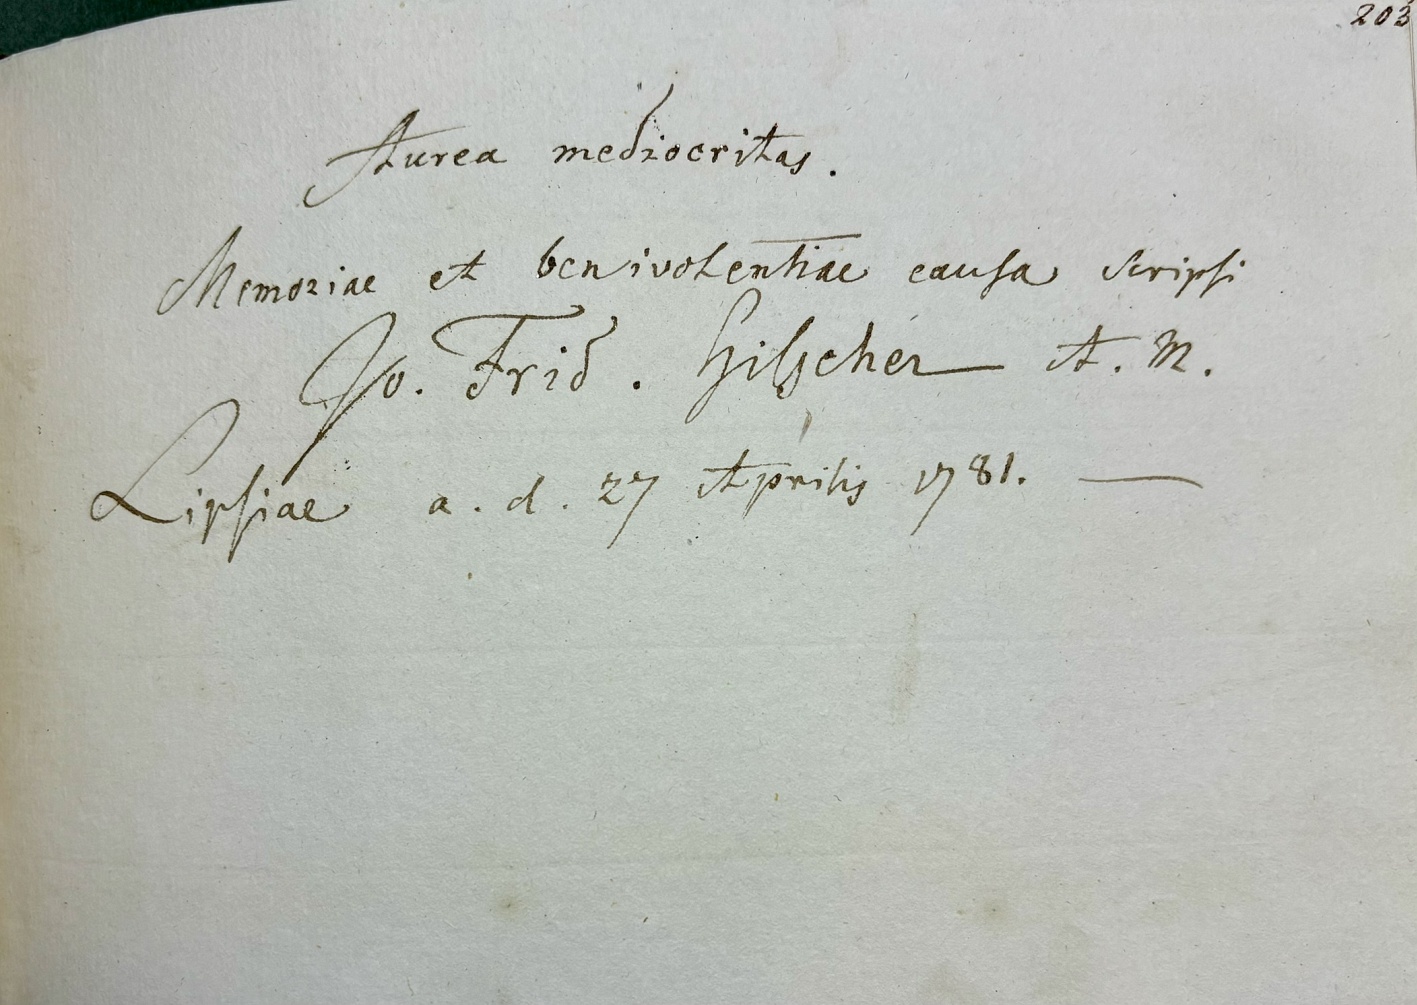 203
Aurea mediocritas.
Memoriae et benivolentiae causa scripsi
Jo. Frid. Hilscher A. M.
Lipsiae a. d. 27 Aprilis 1781. —